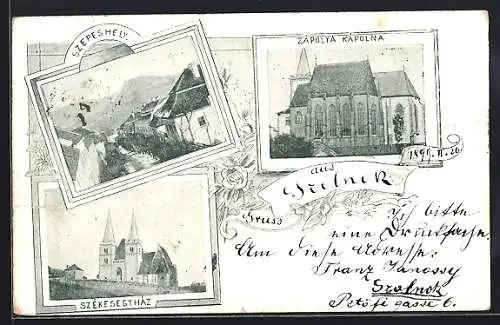 SZEPESHELY
ZÁPOLYA KÁPOLNA
1899. II. 26
Gruss
aus
Szolnok
Ich bitte
eine Drucksache.
Am diese Adresse:
Franz Janossy
Szolnok
Petőfi gasse 6.
SZÉKESEGYHÁZ